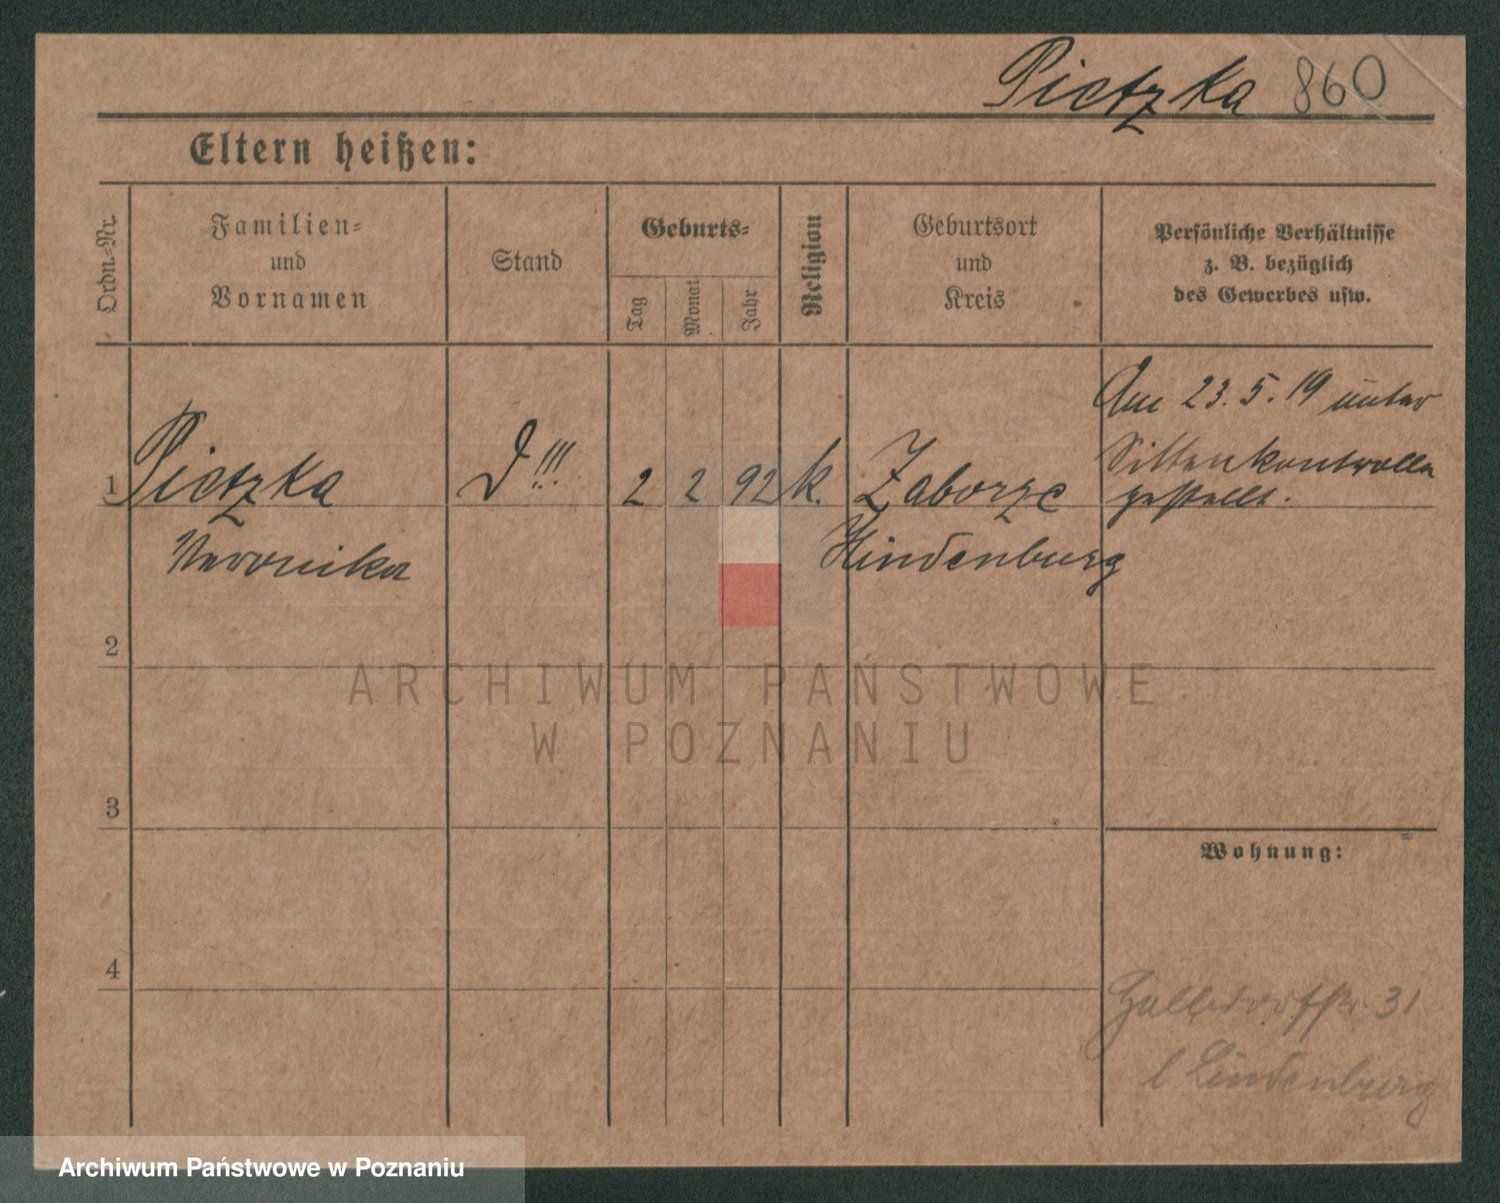 Pietzka 860
Eltern heißen:
Ordn.-Nr.
Familien-
und
Vornamen
Stand
Geburts-
Tag
Monat
Jahr
Religion
Geburtsort
und
Kreis
Persönliche Verhältnisse
z. B. bezüglich
des Gewerbes usw.
1 Pietzka D!!! 2 2 92 k. Zaborze
Veronika Hindenburg
Am 23.5.19 unter
Sittenkontrolle
gestellt.
2
3
4
Wohnung:
31
b Lindenburg
ARCHIWUM PAŃSTWOWE
W POZNANIU
Archiwum Państwowe w Poznaniu